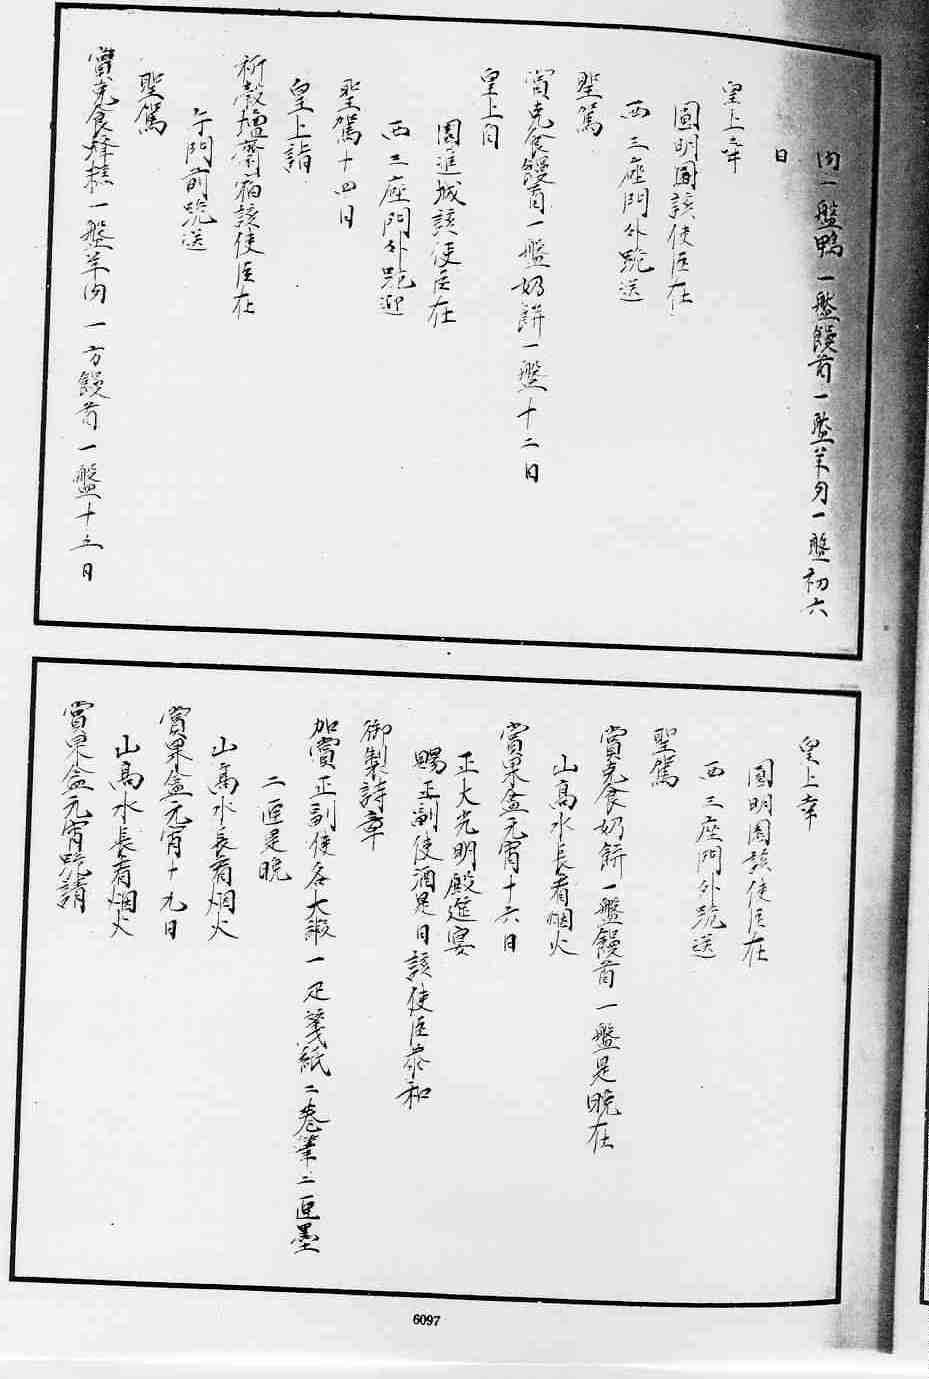 肉一盤鴨一盤饅首一盤羊肉一盤初六
日
皇上幸
圓明園該使臣在
西三座門外跪送
聖駕
賞克食饅首一盤奶餅一盤十二日
皇上自
園進城該使臣在
西三座門外跪迎
聖駕十四日
皇上詣
祈穀壇齋宿該使臣在
午門前跪送
聖駕
賞克食 一盤羊肉一方饅首一盤十五日
皇上幸
圓明園該使臣在
西三座門外跪送
聖駕
賞克食奶餅一盤饅首一盤是晚在
山高水長看烟火
賞果盒元宵十六日
正大光明殿筵宴
賜正副使酒是日該使臣恭和
御製詩章
加賞正副使各大緞一疋箋紙二卷筆二匣墨
二匣是晚
山高水長看烟火
賞果盒元宵十九日
山高水長看烟火
賞果盒元宵跪請
6097